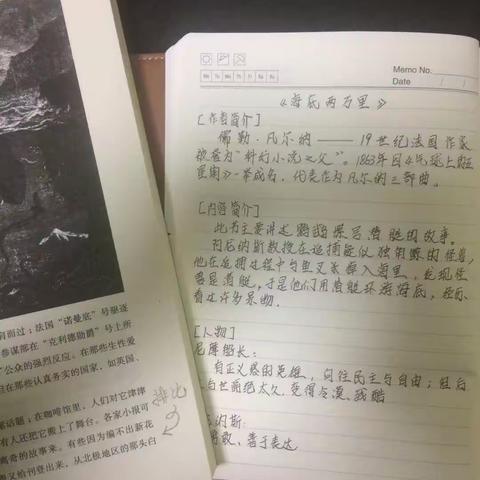 肩而过；法国“诺曼底”号驱逐
参谋部在“克利德勋爵”号上所
了公众的强烈反应。在那些生性爱
但在那些认真务实的国家，如英国、
话题；在咖啡馆里，人们对它津津
有人还把它搬上了舞台。各家小报可
离奇的故事来。有些因为编不出新花
又给刊登出来，从北极地区的那头白
排比
Memo No.
Date / /
Mo Tu We Th Fr Sa Su
《海底两万里》
[作者简介]
儒勒·凡尔纳——19世纪法国作家
被誉为“科幻小说之父”。1863年因《气球上的五
星期》一举成名，代表作为凡尔纳三部曲。
[内容简介]
此书主要讲述鹦鹉螺号潜艇的故事。
阿尼纳斯教授在追捕疑似独角鲸的怪兽，
他在追捕过程中与鱼叉手掉入海里，发现怪
兽是潜艇，于是他们用潜艇环游海底，经历
看过许多景物。
[人物]
尼摩船长：
有正义感的英雄，向往民主与自由；但后
与世隔绝太久，变得冷漠，残酷
纳斯：
勇敢，善于表达